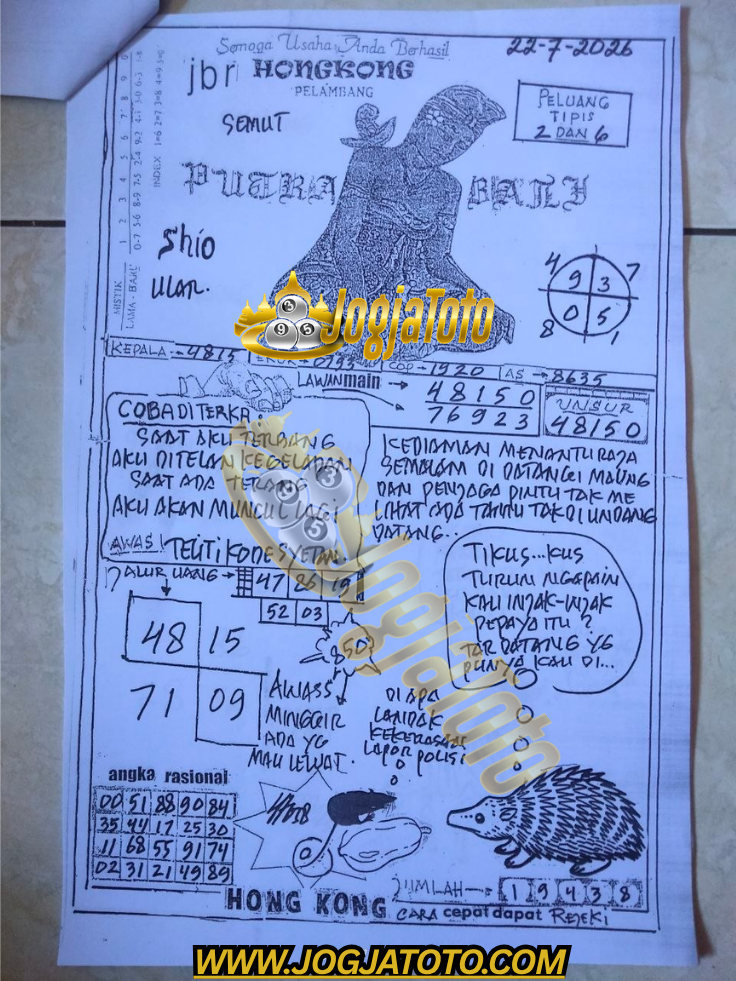 Semoga Usaha Anda Berhasil
22-7-2026
jbr HONGKONG
PELAMBANG
SEMUT
PELUANG
TIPIS
2 DAN 6
PUTRA BALI
Shio
ULAR.
MISTIK
LAMA - BARU
INDEX 1=6 2=7 3=8 4=9 5=0
4 7
9 3
0 5
8 1
JogjaToto
3 9 5
KEPALA → 4815
COP → 1920
AS → 8635
LAWAN main →
48150
76923
UNSUR
48150
COBA DITERKA:
SAAT AKU TERBANG
AKU DITELAN KEGELAPAN
SAAT ADA TERANG
AKU AKAN MUNCUL LAGI
AWAS! TELITI KODE SYETAN.
KEDIAMAN MENANTU RAJA
SEMALAM DI DATANGI MAUNG
DAN PENJAGA PINTU TAK ME
LIHAT ADA TAMU TAK DI UNDANG
DATANG..
JALUR UANG → 47 26 19
52 03
48 15
71 09
850
TIKUS...KUS
TURUN NGAPAIN
KAU INJAK-INJAK
PEPAYA ITU?
NTAR DATANG YG
PUNYA KAU DI...
AWASS
MINGGIR
ADA YG
MAU LEWAT.
DI APA
LANDAK
KEKERASAN
LAPOR POLISI
JogjaToto
angka rasional
00 51 88 90 84
35 44 17 25 30
11 68 55 91 74
02 31 21 49 89
JUMLAH → 1 9 4 3 8
HONG KONG
CARA cepat dapat REJEKI
WWW.JOGJATOTO.COM